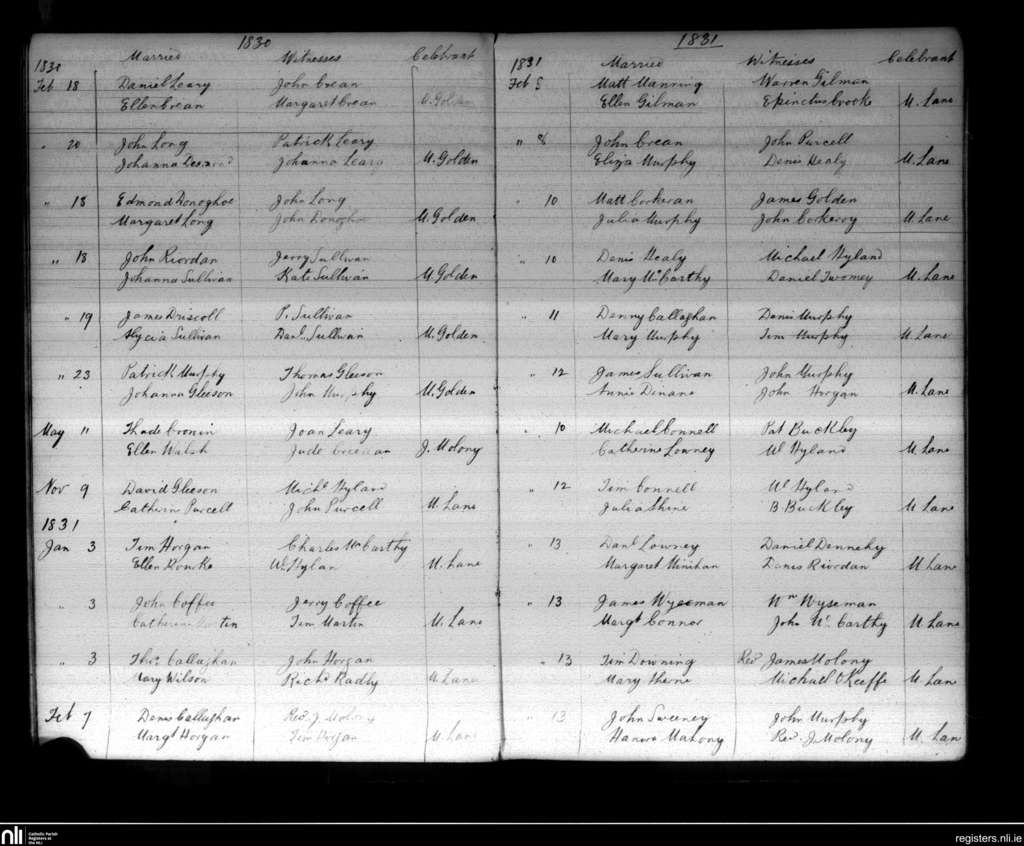 1830
Married Witnesses Celebrant
1830
Feb 18 Daniel Leary John Crean
Ellen Crean Margaret Crean Golden
" 20 John Long Patrick Leary
Johanna Johanna Leary M. Golden
" 18 Edmond Donoghoe John Long
Margaret Long John Donoghoe M. Golden
" 18 John Riordan Jerry Sullivan
Johanna Sullivan Kate Sullivan M. Golden
" 19 James Driscoll P. Sullivan
Alycia Sullivan Danl. Sullivan M. Golden
" 23 Patrick Murphy Thomas Gleeson
Johanna Gleeson John Murphy M. Golden
May 11 Thade Cronin Joan Leary
Ellen Walsh Jude J. Molony
Nov 9 David Gleeson Michl Hyland
Catherin Purcell John Purcell M. Lane
1831
Jan 3 Tim Horgan Charles McCarthy
Ellen Rourke Wm Hylan M. Lane
" 3 John Coffee Jerry Coffee
Catherine Martin Tim Martin M. Lane
" 3 Thos Callaghan John Horgan
Mary Wilson Richd Radly M. Lane
Feb 7 Denis Callaghan Rev. J. Molony
Margt Horgan Tim Horgan M. Lane
1831
Married Witnesses Celebrant
1831
Feb 5 Matt Manning Warren Gilman
Ellen Gilman Brooke M. Lane
" 8 John Crean John Purcell
Eliza Murphy Denis Healy M. Lane
" 10 Matt Corkeran James Golden
Julia Murphy John Corkeroy M. Lane
" 10 Denis Healy Michael Hyland
Mary McCarthy Daniel Twomey M. Lane
" 11 Denny Callaghan Denis Murphy
Mary Murphy Tim Murphy M. Lane
" 12 James Sullivan John Murphy
Annie Dinane John Horgan M. Lane
" 10 Michael Connell Pat Buckley
Catherine Lowney Wm Hyland M. Lane
" 12 Tim Connell Wm Hyland
Julia Shine B. Buckley M Lane
" 13 Danl Lowney Daniel Dennehy
Margaret Minihan Denis Riordan M Lane
" 13 James Wyseman Wm Wyseman
Margt Connor John McCarthy M Lane
" 13 Tim Downing Revd James Molony
Mary Ahern Michael O Keeffe M Lane
" 13 John Sweeney John Murphy
Hanora Mahony Rev. J. Molony M. Lan
nli
Catholic Parish
Registers at
the NLI
registers.nli.ie